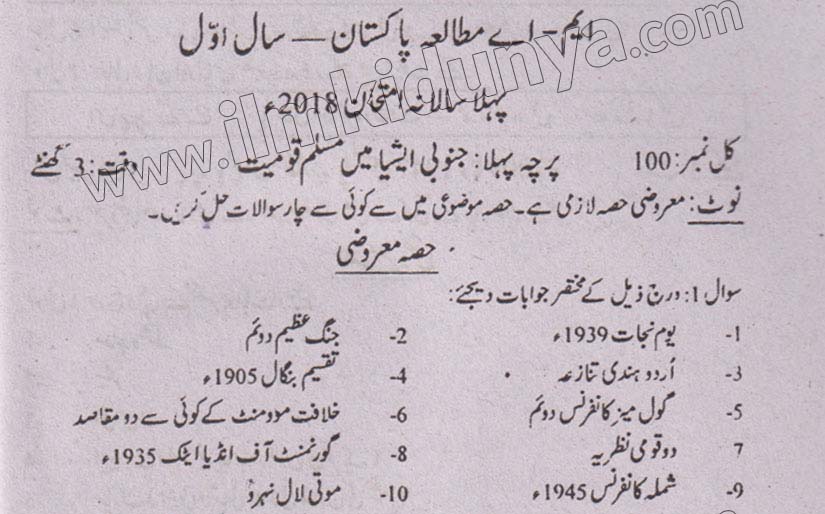 ایم۔اے مطالعہ پاکستان — سال اوّل
پہلا سالانہ امتحان 2018ء
کل نمبر: 100 پرچہ پہلا: جنوبی ایشیا میں مسلم قومیت وقت: 3 گھنٹے
نوٹ: معروضی حصہ لازمی ہے۔ حصہ موضوعی میں سے کوئی سے چار سوالات حل کریں۔
حصہ معروضی
سوال 1: درج ذیل کے مختصر جوابات دیجئے:
1- یوم نجات 1939ء 2- جنگ عظیم دوئم
3- اُردو ہندی تنازعہ 4- تقسیم بنگال 1905ء
5- گول میز کانفرنس دوئم 6- خلافت موومنٹ کے کوئی سے دو مقاصد
7 دو قومی نظریہ 8- گورنمنٹ آف انڈیا ایٹک 1935ء
9- شملہ کانفرنس 1945ء 10- موتی لال نہرو
www.ilmkidunya.com